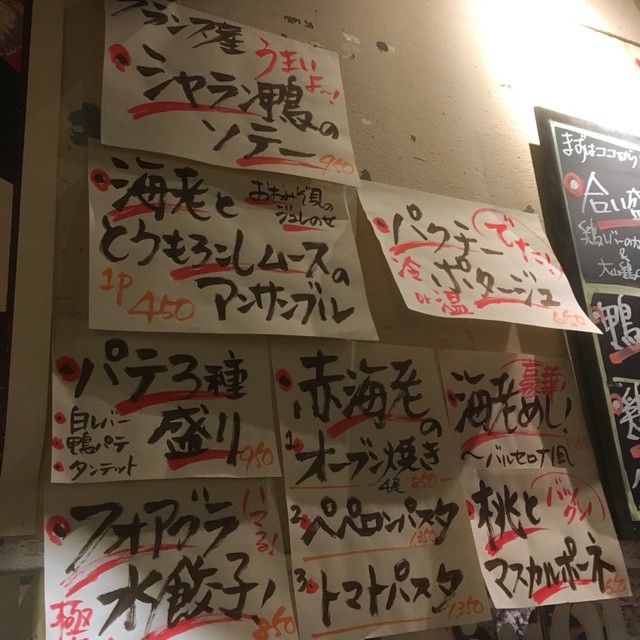 フランス産
シャラン鴨の
ソテー
うまい
よ〜!
950
海老と
とうもろこしムースの
アンサンブル
ジュレのせ
1P
450
パクチー
ポタージュ
でた!!
冷
or
温
650
パテ3種
盛り
・白レバー
・鴨パテ
・タンテット
950
赤海老の
1.オーブン焼き
4尾 850
2.ペペロンパスタ
1350
3.トマトパスタ
1350
豪華!
海老めし!
〜バルセロナ風
フォアグラ
水餃子!
いてる!
極
850
桃と
マスカルポーネ
バツ
グン!
650
まずはココから
合い
鶏レバー
&
大山鶏
鴨